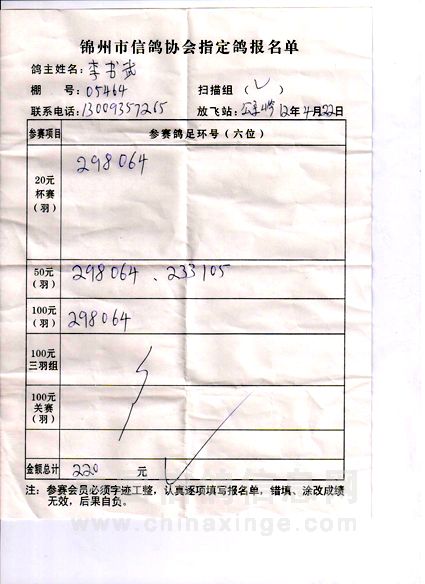 锦州市信鸽协会指定鸽报名单
鸽主姓名：李书武
棚　号：05464　扫描组（✓）
联系电话：13009357265　放飞站：公主岭 12年4月22日
参赛项目　参赛鸽足环号（六位）
20元杯赛（羽）　298064
50元（羽）　298064、233105
100元（羽）　298064
100元三羽组
100元关赛（羽）
金额总计　220　元
注：参赛会员必须字迹工整，认真逐项填写报名单，错填、涂改成绩
无效，后果自负。
www.chinaxinge.com